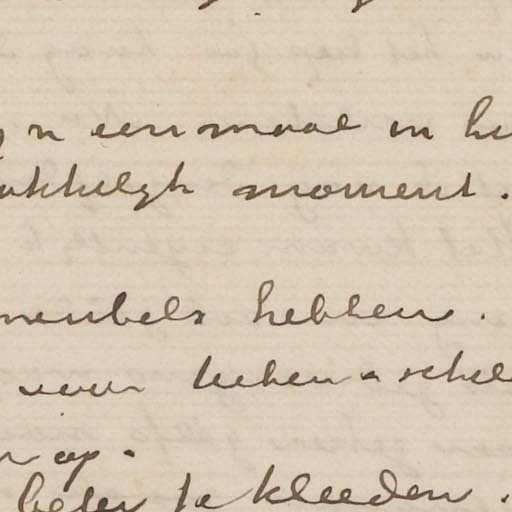 n eenmaal in h
akkelyk moment.
meubels hebben.
voor teeken & schil
op.
beter te kleeden.